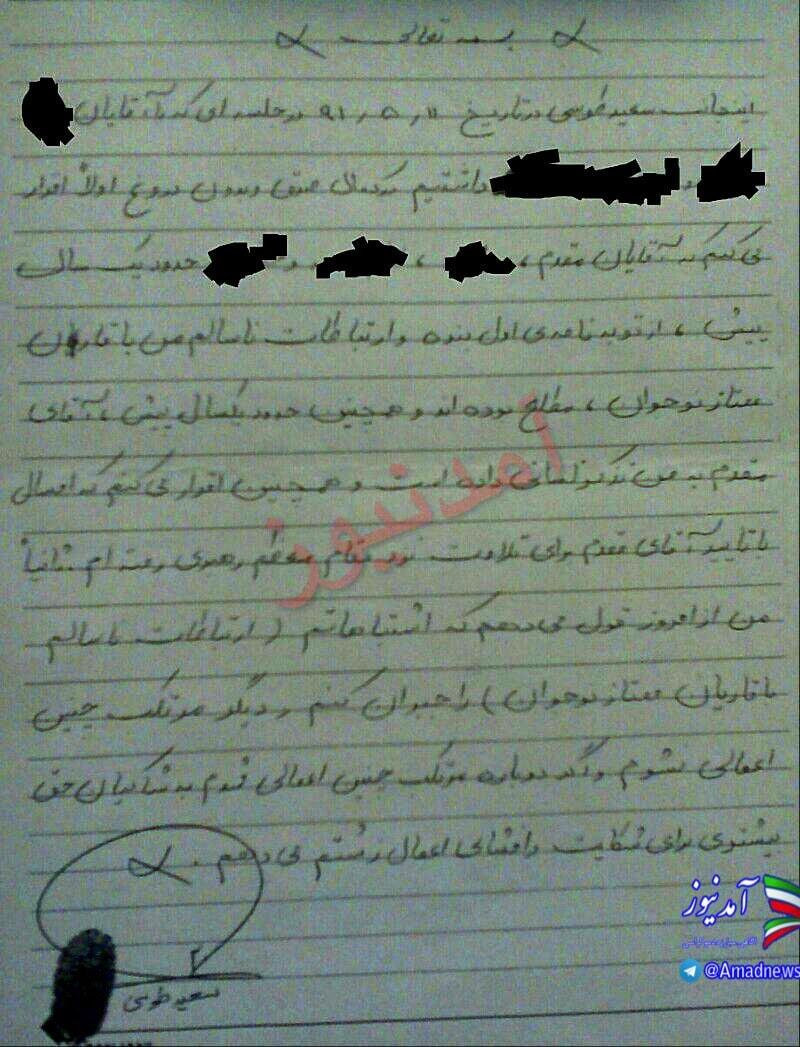 بسمه تعالی
اینجانب سعید طوسی در تاریخ ۹۱٫۵٫۱۱ در جلسه ای که با آقایان
و داشتیم در کمال صدق و بدون دروغ اولاً اقرار
می کنم که آقایان مقدم، ، و حدود یک سال
پیش، از توبه نامه ی اول بنده و ارتباطات ناسالم من با قاریان
ممتاز نوجوان، مطلع بوده اند و همچنین حدود یکسال پیش، آقای
مقدم به من تذکر لسانی داده است و همچنین اقرار می کنم که امسال
با تایید آقای مقدم برای تلاوت نزد مقام معظم رهبری رفته ام ثانیاً
من از امروز قول می دهم که اشتباهاتم (ارتباطات ناسالم
با قاریان ممتاز نوجوان) را جبران کنم و دیگر مرتکب چنین
اعمالی نشوم و اگر دوباره مرتکب چنین اعمالی شوم به شاکیان حق
بیشتری برای شکایت و افشای اعمال زشتم می دهم.
سعید طوسی
آمدنیوز
آمدنیوز
@Amadnews